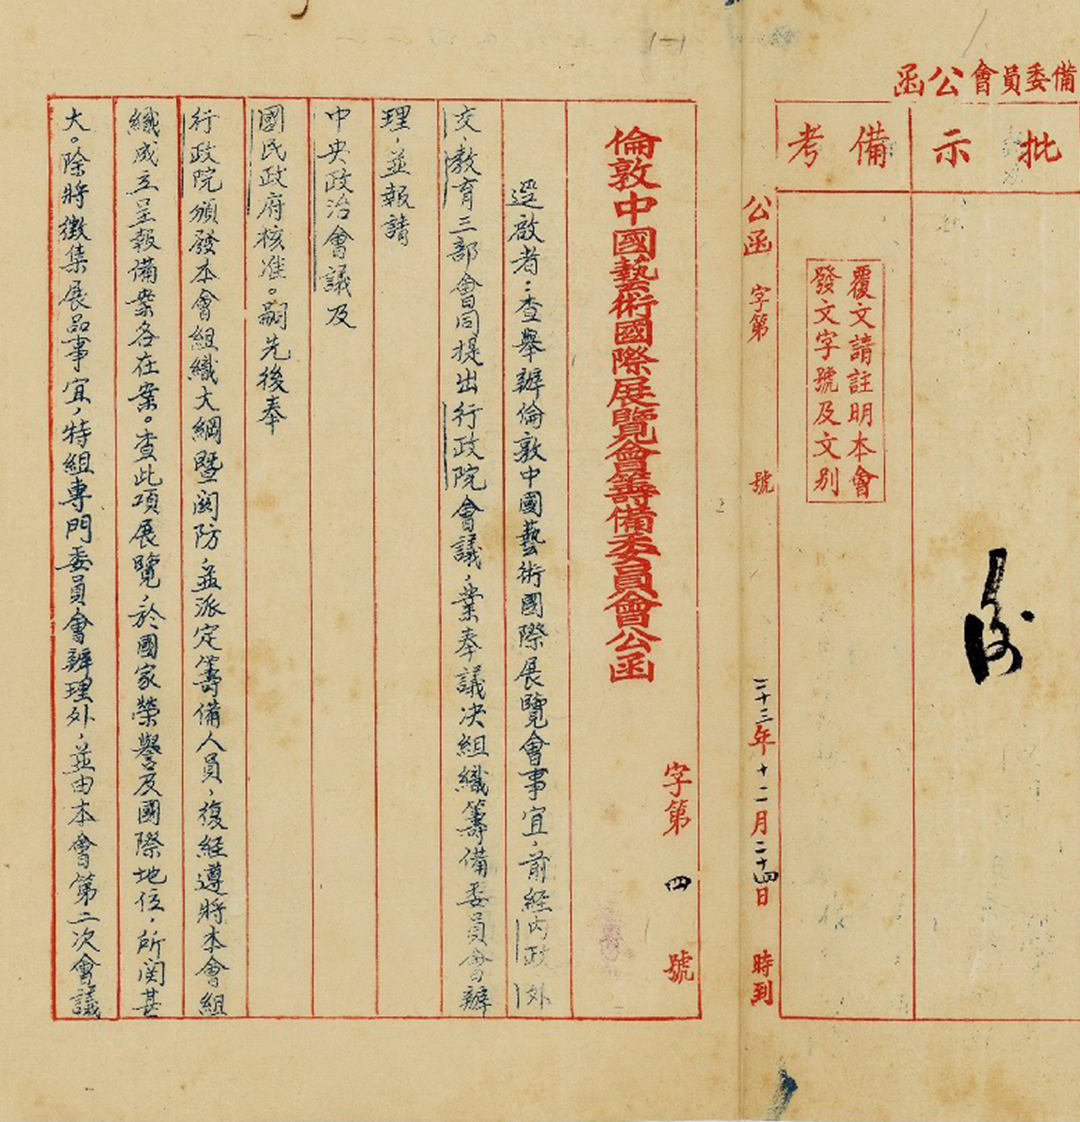 備委員會公函
批示
備考
覆文請註明本會
發文字號及文別
公函 字第 號 二十三年十二月二十四日 時到
倫敦中國藝術國際展覽會籌備委員會公函
字第四號
逕啟者：查舉辦倫敦中國藝術國際展覽會事宜，前經內政、外
交、教育三部會同提出行政院會議，業奉議決組織籌備委員會辦
理，並報請
中央政治會議及
國民政府核准。嗣先後奉
行政院頒發本會組織大綱暨關防，並派定籌備人員，復經遵將本會組
織成立呈報備案各在案。查此項展覽，於國家榮譽及國際地位，所関甚
大。除將徵集展品事宜，特組專門委員會辦理外，並由本會第二次會議